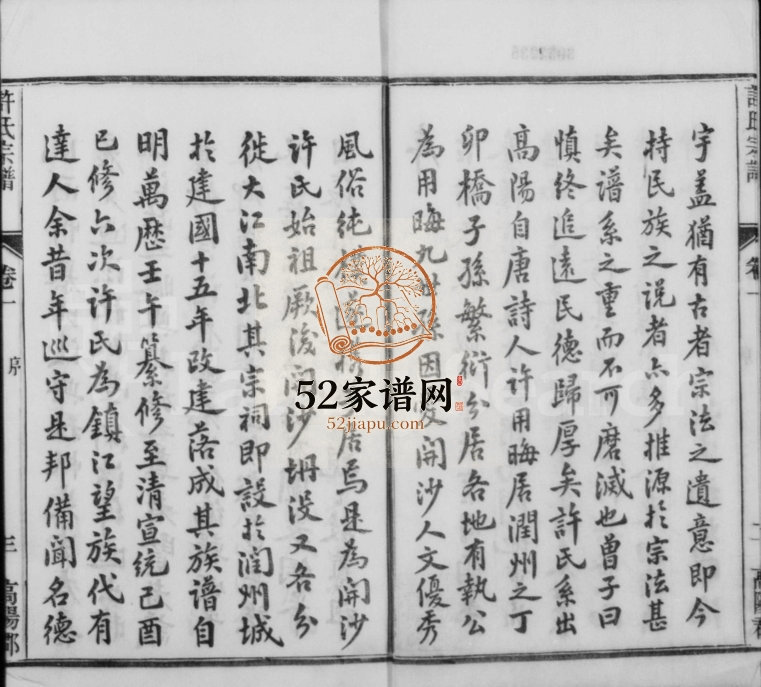 宇盖猶有古者宗法之遺意即今
持民族之说者亦多推源於宗法甚
矣谱系之重而不可磨滅也曾子曰
慎终追遠民德歸厚矣許氏系出
高陽自唐詩人许用晦居潤州之丁
卯橋子孫繁衍分居各地有執公
為用晦九世孫因 開沙人文優秀
風俗純 居焉是為開沙
许氏始祖厥後開沙坍没又各分
徙大江南北其宗祠即設於润州城
於建國十五年改建落成其族谱自
明萬歷壬午纂修至清宣统己酉
已修六次许氏為鎮江望族代有
達人余昔年巡守是邦備聞名德
許氏宗譜
卷一
序
三
高陽郡
52家谱网
52jiapu.com